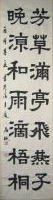 芳草滿亭飛燕子
晚涼和雨滴梧桐